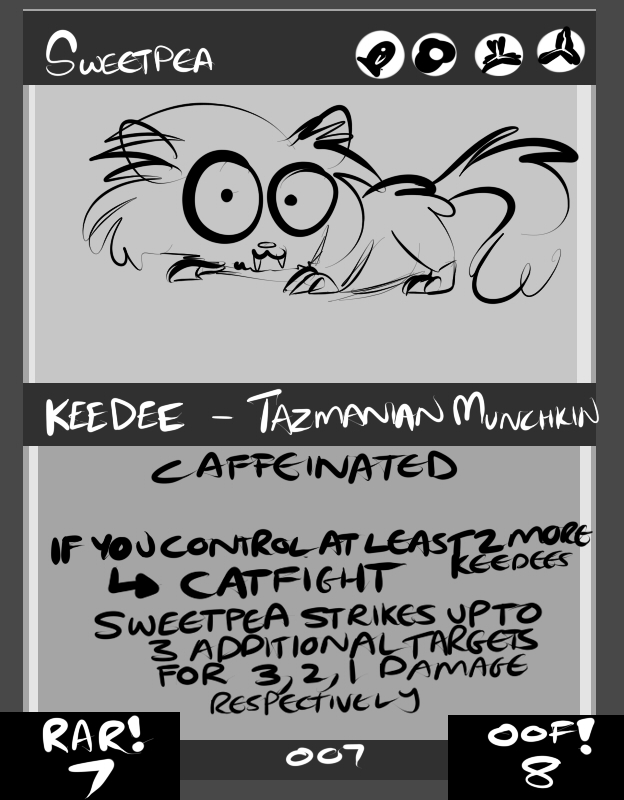 SWEETPEA
KEEDEE - TAZMANIAN MUNCHKIN
CAFFEINATED
IF YOU CONTROL AT LEAST 2 MORE
KEEDEES
↳ CATFIGHT
SWEETPEA STRIKES UP TO
3 ADDITIONAL TARGETS
FOR 3, 2, 1 DAMAGE
RESPECTIVELY
RAR!
7
007
OOF!
8